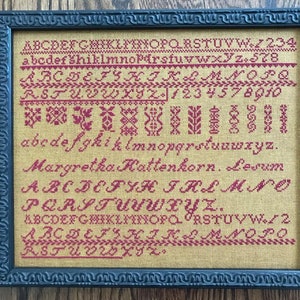 ABCDEFGHIJKLMNOPQRSTUVWXYZ.1234
abcdefghiklmnopqrstuvwxyz.578
ABCDEFGHIJKLMNOPQ
RSTUVWXYZ. 12345678910
abcdefghijklmnopqrstuvwxyz.
Margretha Hattenkorn. Lesum
ABCDEFGHIKLMNO
PQRSTUVWXYZ.
ABCDEFGHIJKLMNOPQRSTUVWXYZ.12
ABCDEFGHIJKLMNOPQ
RSTUVWXYZ.